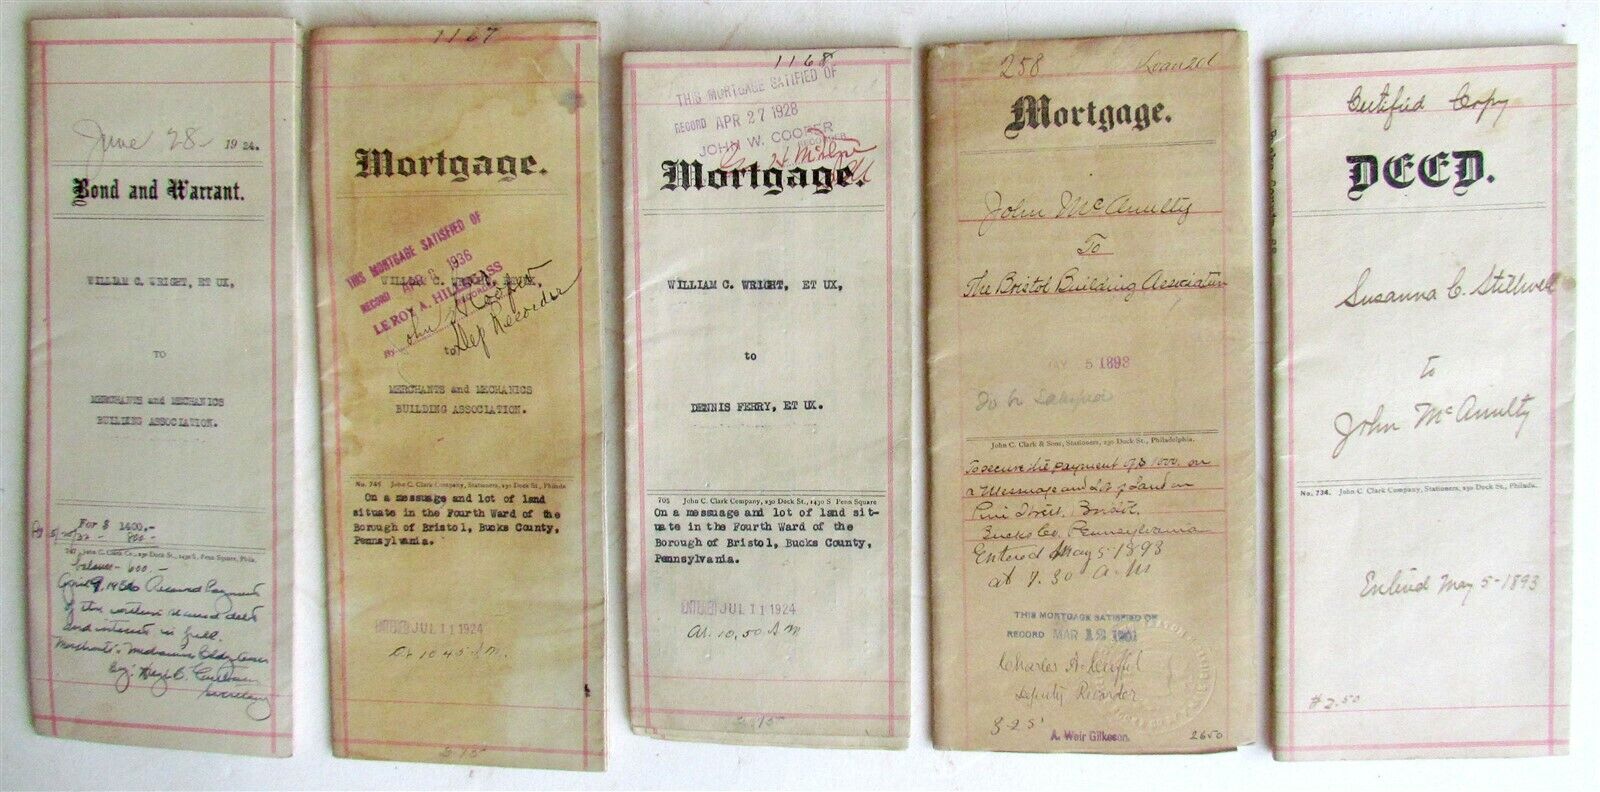 June 28 1924.
Bond and Warrant.
WILLIAM C. WRIGHT, ET UX,
TO
MERCHANTS and MECHANICS
BUILDING ASSOCIATION.
For $ 1400.-
5/20/32 - 800.-
747 John C. Clark Co., 230 Dock St., 1430 S. Penn Square, Phila.
balance - 600.-
April 9, 1936 Received Payment
of the within named debt
and interest in full.
Merchants & Mechanics Bldg Assn
By:
Secretary
1167
Mortgage.
THIS MORTGAGE SATISFIED OF
RECORD 1936
LEROY A.
By John H Cooper
Dep Recorder
WILLIAM C. WRIGHT, ET UX,
to
MERCHANTS and MECHANICS
BUILDING ASSOCIATION.
No. 745 John C. Clark Company, Stationers, 230 Dock St., Philada
On a message and lot of land
situate in the Fourth Ward of the
Borough of Bristol, Bucks County,
Pennsylvania.
JUL 11 1924
At 10 45 A.M.
3.75
1168
THIS MORTGAGE SATIFIED OF
RECORD APR 27 1928
JOHN W. COOPER
RECORDER
Mortgage.
WILLIAM C. WRIGHT, ET UX,
to
DENNIS FERRY, ET UX.
705 John C. Clark Company, 230 Dock St., 1430 S Penn Square
On a message and lot of land sit-
uate in the Fourth Ward of the
Borough of Bristol, Bucks County,
Pennsylvania.
JUL 11 1924
At. 10,50 A M
3.75
258 Loan 201
Mortgage.
John McAnulty
To
The Bristol Building Association
5 1893
To be Satisfied
John C. Clark & Sons, Stationers, 230 Dock St., Philadelphia.
To secure the payment of $1000. on
a Message and Lot of Land on
Pine Street, Bristol.
Bucks Co. Pennsylvania
Entered May 5 1893
at 7.30 A.M
THIS MORTGAGE SATISFIED OF
RECORD MAR 12 1901
Charles A.
Deputy Recorder
325
A. Weir Gilkeson.
2650
Certified Copy
DEED.
Susanna C. Stillwell
to
John McAnulty
No. 734. John C. Clark Company, Stationers, 230 Dock St., Philada.
Entered May 5-1893
$2.50